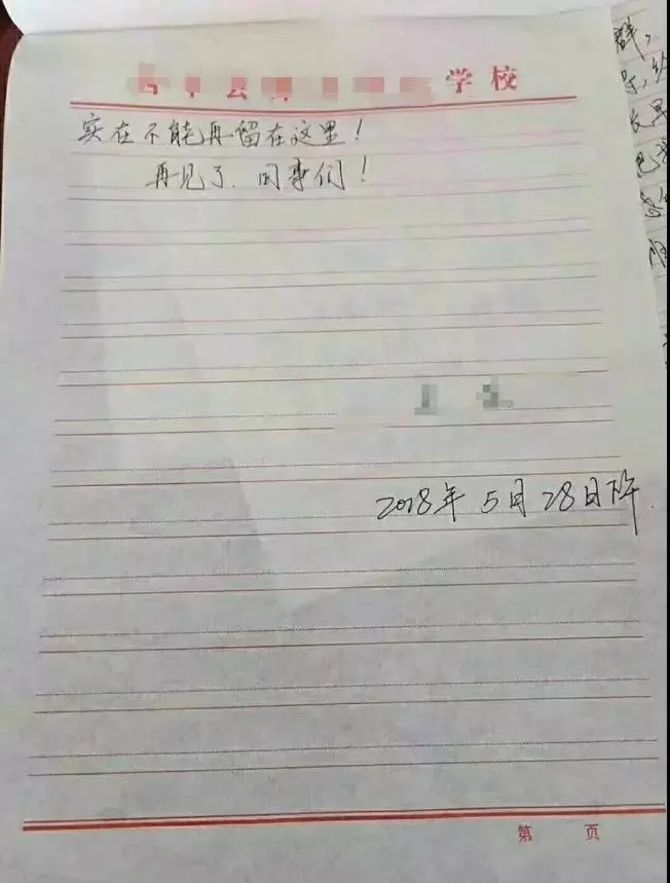 学校
实在不能再留在这里！
再见了.同事们！
2018年5月28日下午
第 页